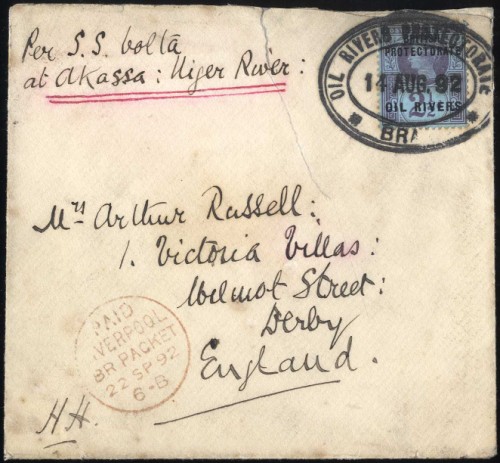 Per S.S. Volta
at Akassa: Niger River:
OIL RIVERS PROTECTORATE
PROTECTORATE
14 AUG. 92
OIL RIVERS
2½
BRA
Mrs Arthur Russell:
1. Victoria Villas:
Wilmot Street:
Derby
England.
PAID
LIVERPOOL
BR PACKET
22 SP 92
6-B
HH.